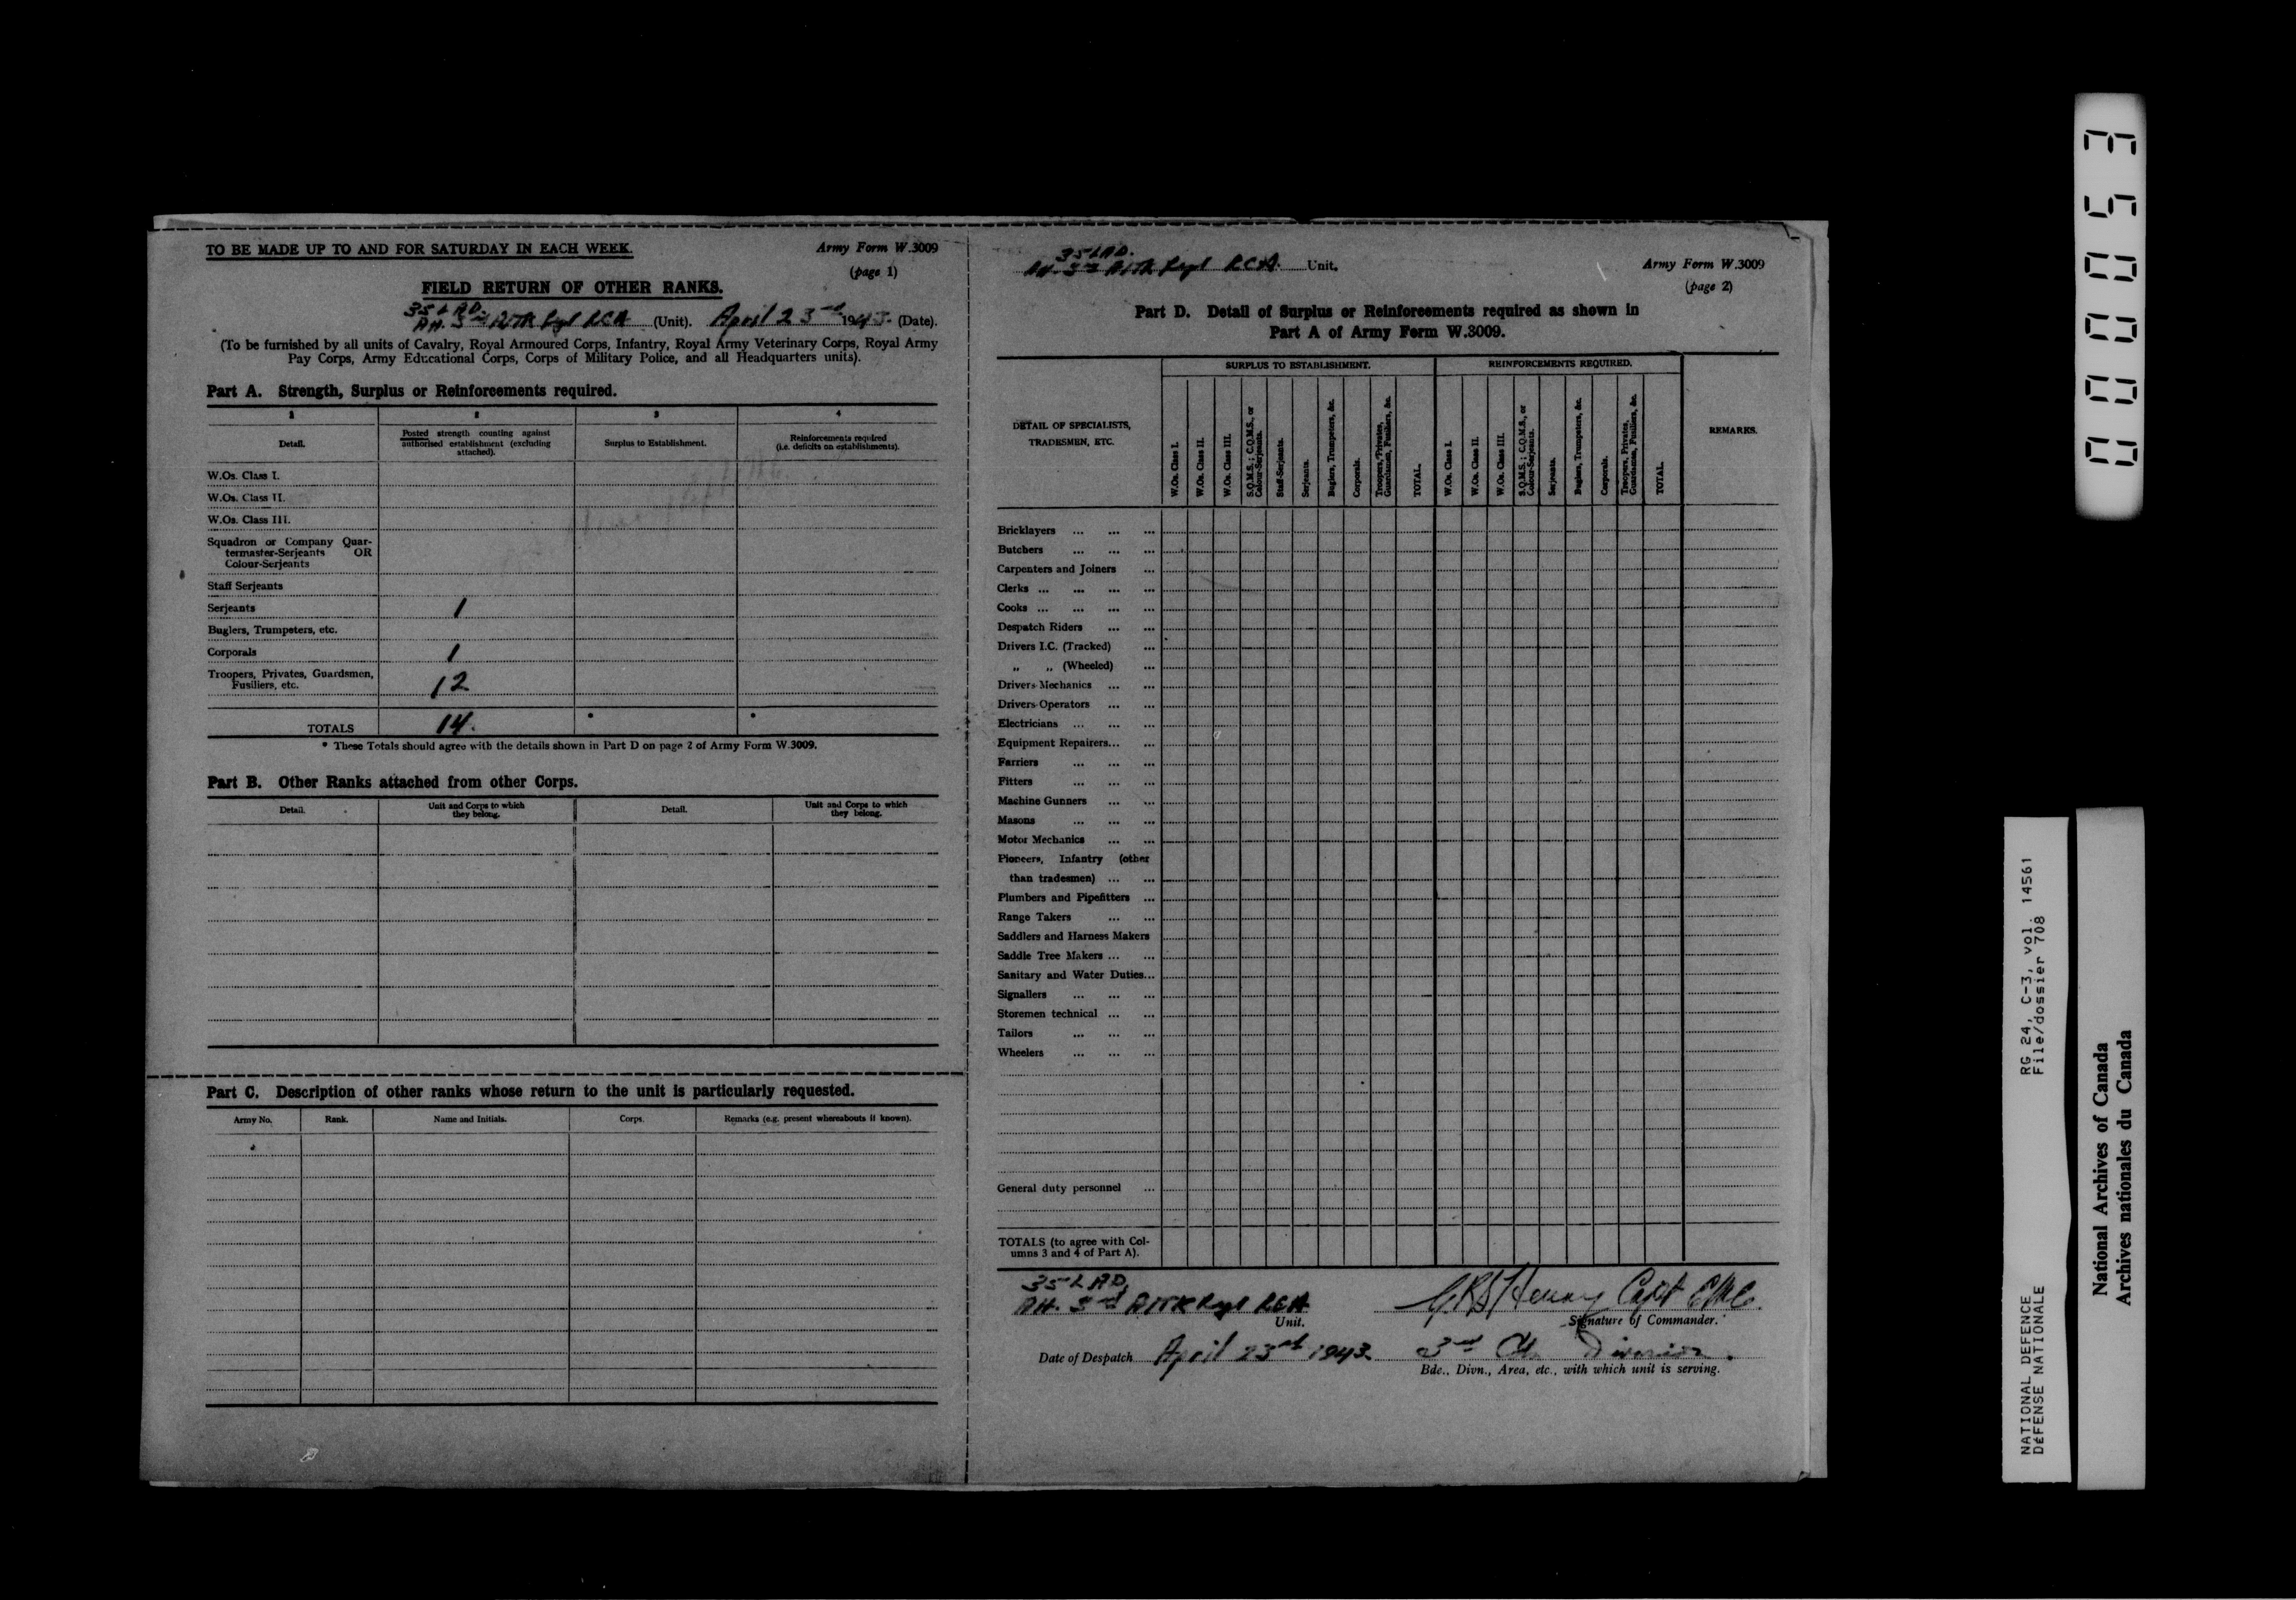 TO BE MADE UP TO AND FOR SATURDAY IN EACH WEEK.
Army Form W.3009
(page 1)
FIELD RETURN OF OTHER RANKS.
35 L A D
3rd Regt RCA (Unit). April 23rd 1943. (Date).
(To be furnished by all units of Cavalry, Royal Armoured Corps, Infantry, Royal Army Veterinary Corps, Royal Army
Pay Corps, Army Educational Corps, Corps of Military Police, and all Headquarters units).
Part A. Strength, Surplus or Reinforcements required.
1 2 3 4
Detail.
Posted strength counting against
authorised establishment (excluding
attached).
Surplus to Establishment.
Reinforcements required
(i.e. deficits on establishments).
W.Os. Class I.
W.Os. Class II.
W.Os. Class III.
Squadron or Company Quar-
termaster-Serjeants OR
Colour-Serjeants
Staff Serjeants
Serjeants 1
Buglers, Trumpeters, etc.
Corporals 1
Troopers, Privates, Guardsmen,
Fusiliers, etc. 12
TOTALS 14. * *
* These Totals should agree with the details shown in Part D on page 2 of Army Form W.3009.
Part B. Other Ranks attached from other Corps.
Detail.
Unit and Corps to which
they belong.
Detail.
Unit and Corps to which
they belong.
Part C. Description of other ranks whose return to the unit is particularly requested.
Army No. Rank. Name and Initials. Corps. Remarks (e.g. present whereabouts if known).
35 L A D.
3rd Regt RCA. Unit.
Army Form W.3009
(page 2)
Part D. Detail of Surplus or Reinforcements required as shown in
Part A of Army Form W.3009.
DETAIL OF SPECIALISTS,
TRADESMEN, ETC.
SURPLUS TO ESTABLISHMENT.
W.Os. Class I.
W.Os. Class II.
W.Os. Class III.
S.Q.M.S.; C.Q.M.S., or
Colour-Serjeants.
Staff-Serjeants.
Serjeants.
Buglers, Trumpeters, &c.
Corporals.
Troopers, Privates,
Guardsmen, Fusiliers, &c.
TOTAL.
REINFORCEMENTS REQUIRED.
W.Os. Class I.
W.Os. Class II.
W.Os. Class III.
S.Q.M.S.; C.Q.M.S., or
Colour-Serjeants.
Serjeants.
Buglers, Trumpeters, &c.
Corporals.
Troopers, Privates,
Guardsmen, Fusiliers, &c.
TOTAL.
REMARKS.
Bricklayers ... ... ...
Butchers ... ... ...
Carpenters and Joiners ...
Clerks ... ... ... ...
Cooks ... ... ... ...
Despatch Riders ... ...
Drivers I.C. (Tracked) ...
„ „ (Wheeled) ...
Drivers-Mechanics ... ...
Drivers-Operators ... ...
Electricians ... ... ...
Equipment Repairers... ...
Farriers ... ... ...
Fitters ... ... ...
Machine Gunners ... ...
Masons ... ... ...
Motor Mechanics ... ...
Pioneers, Infantry (other
than tradesmen) ... ...
Plumbers and Pipefitters ...
Range Takers ... ...
Saddlers and Harness Makers
Saddle Tree Makers ... ...
Sanitary and Water Duties...
Signallers ... ... ...
Storemen technical ... ...
Tailors ... ... ...
Wheelers ... ... ...
General duty personnel ...
TOTALS (to agree with Col-
umns 3 and 4 of Part A).
35 L A D,
3rd Regt RCA
Unit.
Henry Capt
Signature of Commander.
Date of Despatch April 23rd 1943.
3rd Division.
Bde., Divn., Area, etc., with which unit is serving.
000053
RG 24, C-3, vol. 14561
File/dossier 708
NATIONAL DEFENCE
DÉFENSE NATIONALE
National Archives of Canada
Archives nationales du Canada